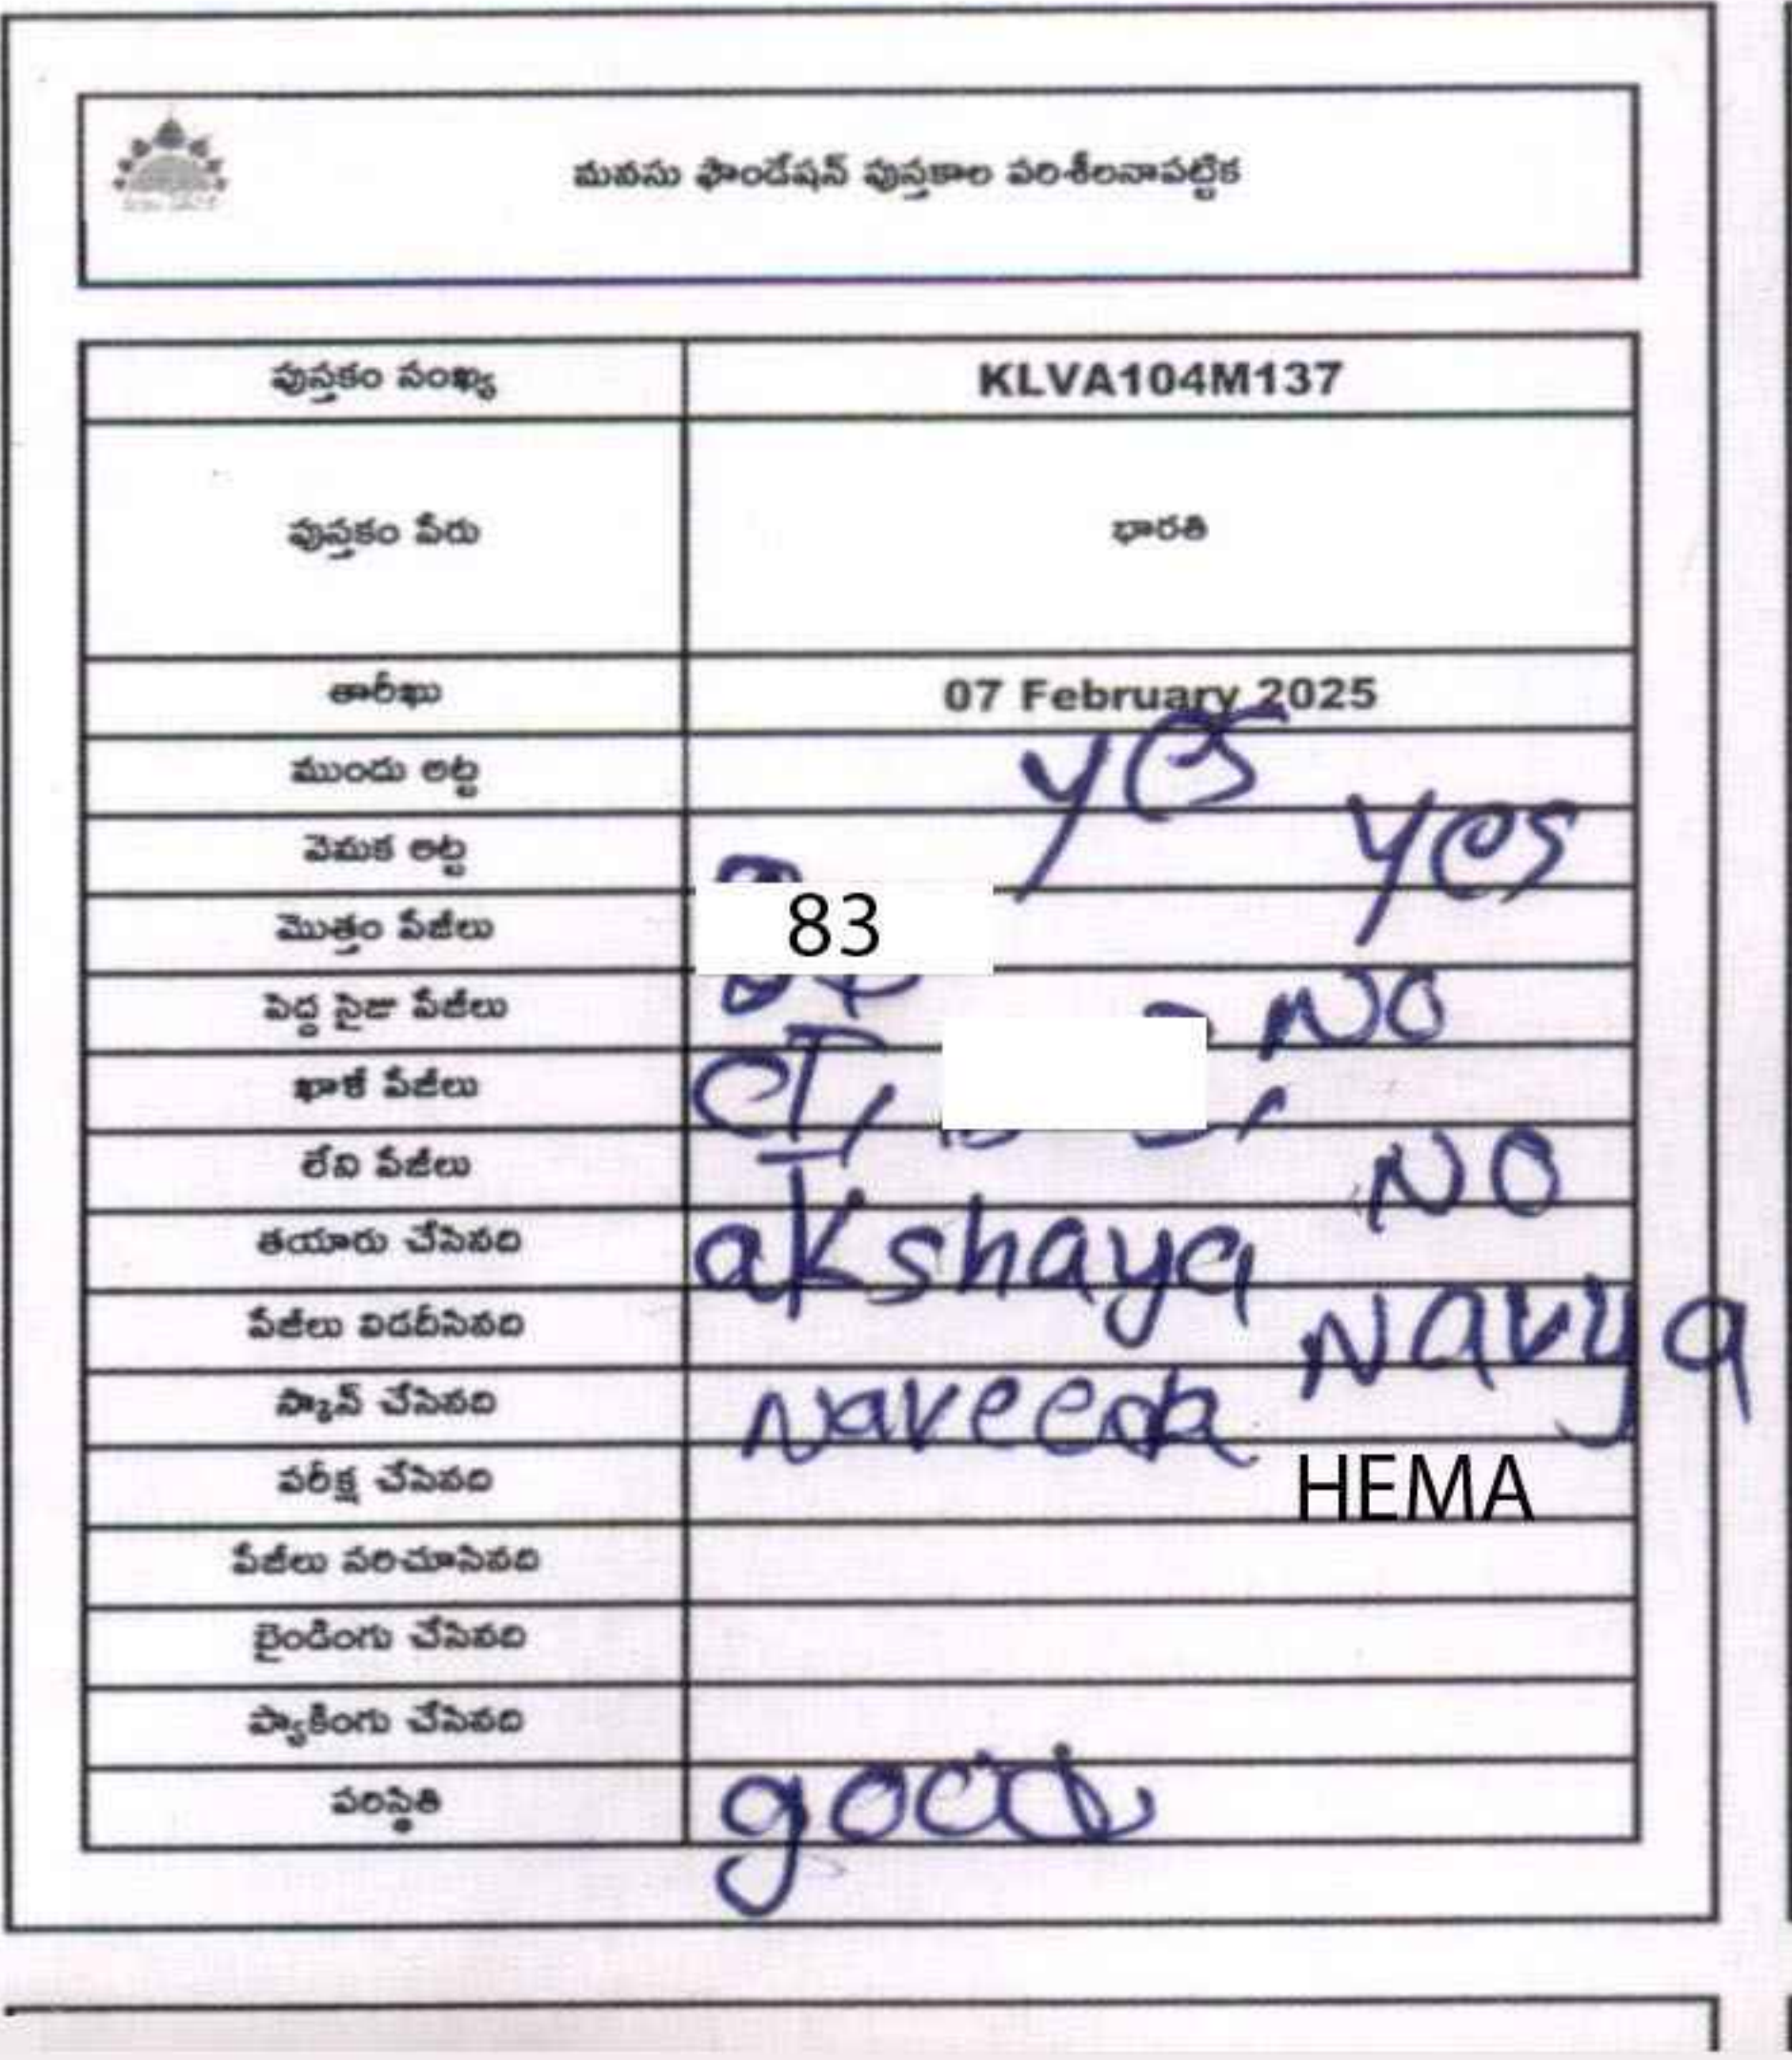 మనసు ఫౌండేషన్ పుస్తకాల పరిశీలనాపట్టిక
పుస్తకం సంఖ్య KLVA104M137
పుస్తకం పేరు భారతి
తారీఖు 07 February 2025
ముందు అట్ట yes
వెనుక అట్ట yes
మొత్తం పేజీలు 83
పెద్ద సైజు పేజీలు NO
ఖాళీ పేజీలు CT,
లేని పేజీలు NO
తయారు చేసినది akshaya
పేజీలు విడదీసినది Navya
స్కాన్ చేసినది
పరీక్ష చేసినది HEMA
పేజీలు సరిచూసినది
బైండింగు చేసినది
ప్యాకింగు చేసినది
పరిస్థితి good